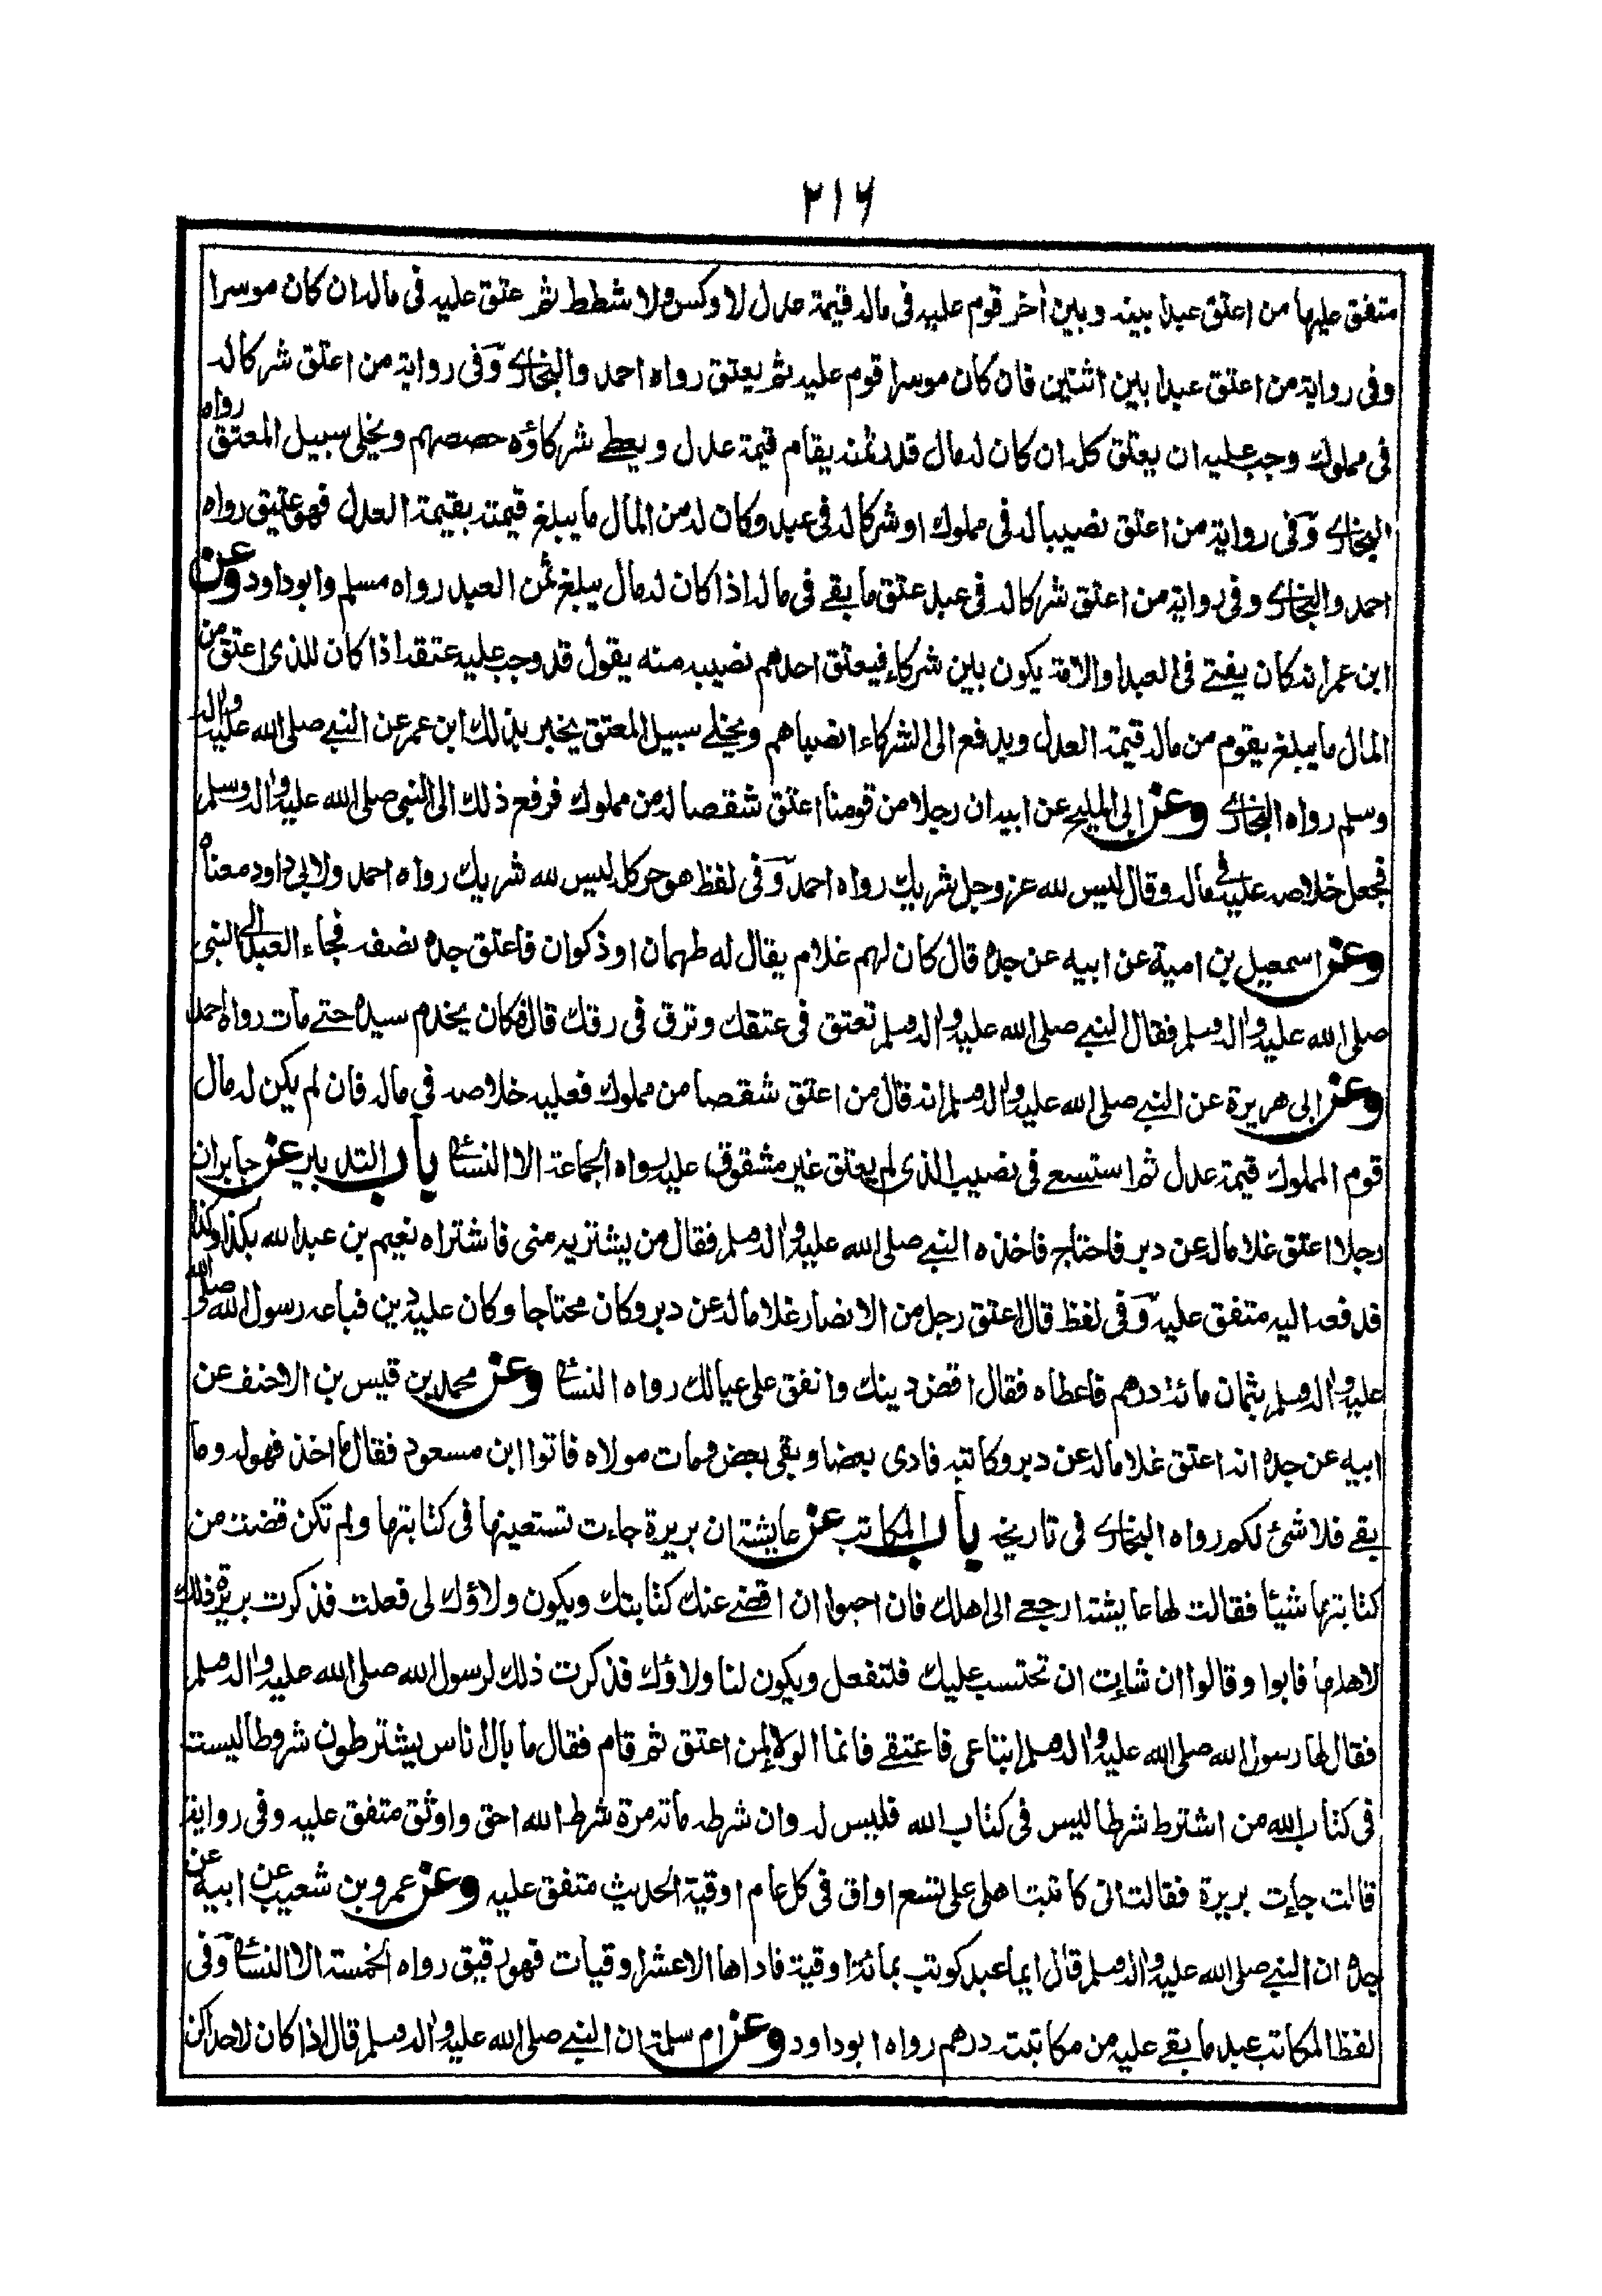 ٢١٦
متفق عليها من اعتق عبدا بينه وبين أخر قوم عليه فى ماله قيمة عدل لا وكس ولا شطط ثم عتق عليه فى ماله ان كان موسرا
وفى رواية من اعتق عبدا بين اثنين فان كان موسرا قوم عليه ثم يعتق رواه احمد والبخارى وفى رواية من اعتق شركا له
فى مملوك وجب عليه ان يعتق كله ان كان له مال قدر ثمنه يقام قيمة عدل ويعطى شركاؤه حصصهم ويخلى سبيل المعتق رواه
البخارى وفى رواية من اعتق نصيبا له فى مملوك او شركا له فى عبد وكان له من المال ما يبلغ قيمته بقيمة العدل فهو عتيق رواه
احمد والبخارى وفى رواية من اعتق شركا له فى عبد عتق ما بقے فى ماله اذا كان له مال يبلغ ثمن العبد رواه مسلم وابوداود وعن
ابن عمر انه كان يفتے فى العبد او الامة يكون بين شركاء فيعتق احدهم نصيبه منه يقول قد وجب عليه عتقه اذا كان للذى اعتق من
المال ما يبلغ يقوم من ماله قيمة العدل ويدفع الى الشركاء انصباهم ويخلے سبيل المعتق يخبر بذلك ابن عمر عن النبے صلى الله عليه واله
وسلم رواه البخارى وعن ابى المليح عن ابيه ان رجلا من قومنا اعتق شقصا له من مملوك فرفع ذلك الى النبى صلى الله عليه واله وسلم
فجعل خلاصه عليه فى ماله وقال ليس لله عز وجل شريك رواه احمد وفى لفظ هو حر كله ليس لله شريك رواه احمد ولابى داود معناه
وعن اسمعيل بن امية عن ابيه عن جده قال كان لهم غلام يقال له طهمان او ذكوان فاعتق جده نصفه فجاء العبد الى النبى
صلى الله عليه واله وسلم فقال النبے صلى الله عليه واله وسلم تعتق فى عتقك وترق فى رقك قال فكان يخدم سيده حتے مات رواه احمد
وعن ابى هريرة عن النبے صلى الله عليه واله وسلم انه قال من اعتق شقصا من مملوك فعليه خلاصه فى ماله فان لم يكن له مال
قوم المملوك قيمة عدل ثم استسعے فى نصيب الذى لم يعتق غير مشقوق عليه رواه الجماعة الا النسائى باب التدبير عن جابر ان
رجلا اعتق غلاما له عن دبر فاحتاج فاخذه النبے صلى الله عليه واله وسلم فقال من يشتريه منى فاشتراه نعيم بن عبد الله بكذا وكذا
فدفعه اليه متفق عليه وفى لفظ قال اعتق رجل من الانصار غلاما له عن دبر وكان محتاجا وكان عليه دين فباعه رسول الله صلى الله
عليه واله وسلم بثمان مائة درهم فاعطاه فقال اقض دينك وانفق على عيالك رواه النسائى وعن محمد بن قيس بن الاحنف عن
ابيه عن جده انه اعتق غلاما له عن دبر وكاتبه فادى بعضا وبقى بعض ومات مولاه فاتوا ابن مسعود فقال ما اخذ فهو له وما
بقے فلا شئ لكم رواه البخارى فى تاريخه باب المكاتب عن عايشة ان بريرة جاءت تستعينها فى كتابتها ولم تكن قضت من
كتابتها شيئا فقالت لها عايشة ارجعے الى اهلك فان احبوا ان اقضے عنك كتابتك ويكون ولاؤك لى فعلت فذكرت بريرة ذلك
لاهلها فابوا وقالوا ان شاءت ان تحتسب عليك فلتفعل ويكون لنا ولاؤك فذكرت ذلك لرسول الله صلى الله عليه واله وسلم
فقال لها رسول الله صلى الله عليه واله وسلم ابتاعى فاعتقے فانما الولاء لمن اعتق ثم قام فقال ما بال اناس يشترطون شروطا ليست
فى كتاب الله من اشترط شرطا ليس فى كتاب الله فليس له وان شرطه مائة مرة شرط الله احق واوثق متفق عليه وفى رواية
قالت جاءت بريرة فقالت انى كاتبت اهلى على تسع اواق فى كل عام اوقية الحديث متفق عليه وعن عمرو بن شعيب عن ابيه عن
جده ان النبے صلى الله عليه واله وسلم قال ايما عبد كوتب بمائة اوقية فاداها الا عشر اوقيات فهو رقيق رواه الخمسة الا النسائى وفى
لفظ المكاتب عبد ما بقے عليه من مكاتبته درهم رواه ابوداود وعن ام سلمة ان النبے صلى الله عليه واله وسلم قال اذا كان لاحداكن